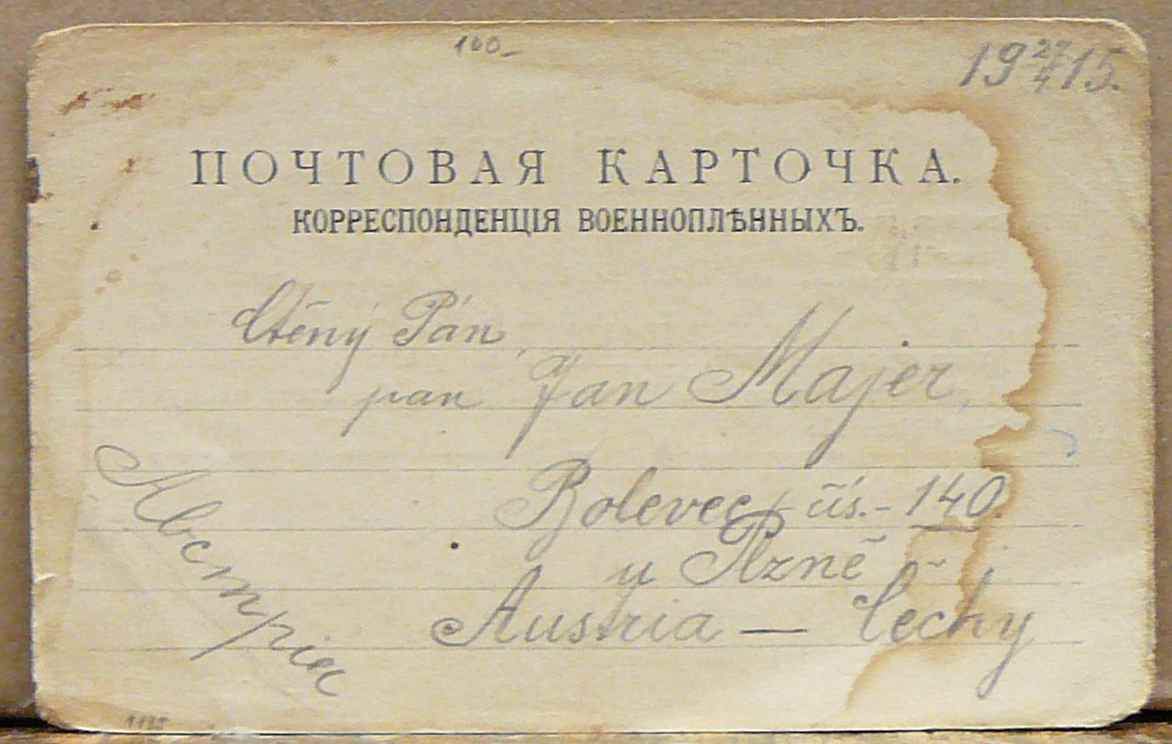 100-
19 27/4 15.
ПОЧТОВАЯ КАРТОЧКА.
КОРРЕСПОНДЕНЦІЯ ВОЕННОПЛѢННЫХЪ.
Ctěný Pán,
pan Jan Majer,
Bolevec čís.- 140.
u Plzně
Austria — Čechy
Австрія